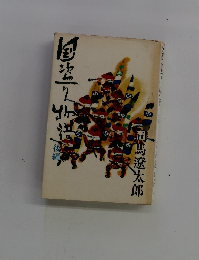 国盗り物語
後編
司馬遼太郎